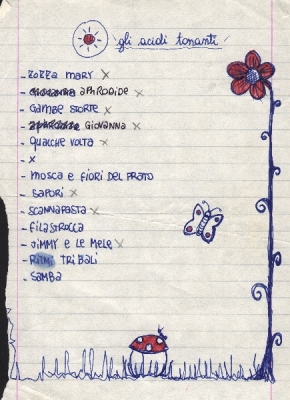 gli acidi tonanti
- ZOZZA MARY X
- GIOVANNA APHRODIDE X
- GAMBE STORTE X
- APHRODIDE GIOVANNA X
- QUALCHE VOLTA X
- X
- MOSCA E FIORI DEL PRATO
- SAPORI X
- SCANNAPASTA X
- FILASTROCCA
- JIMMY E LE MELE X
- RITMI TRIBALI
- SAMBA